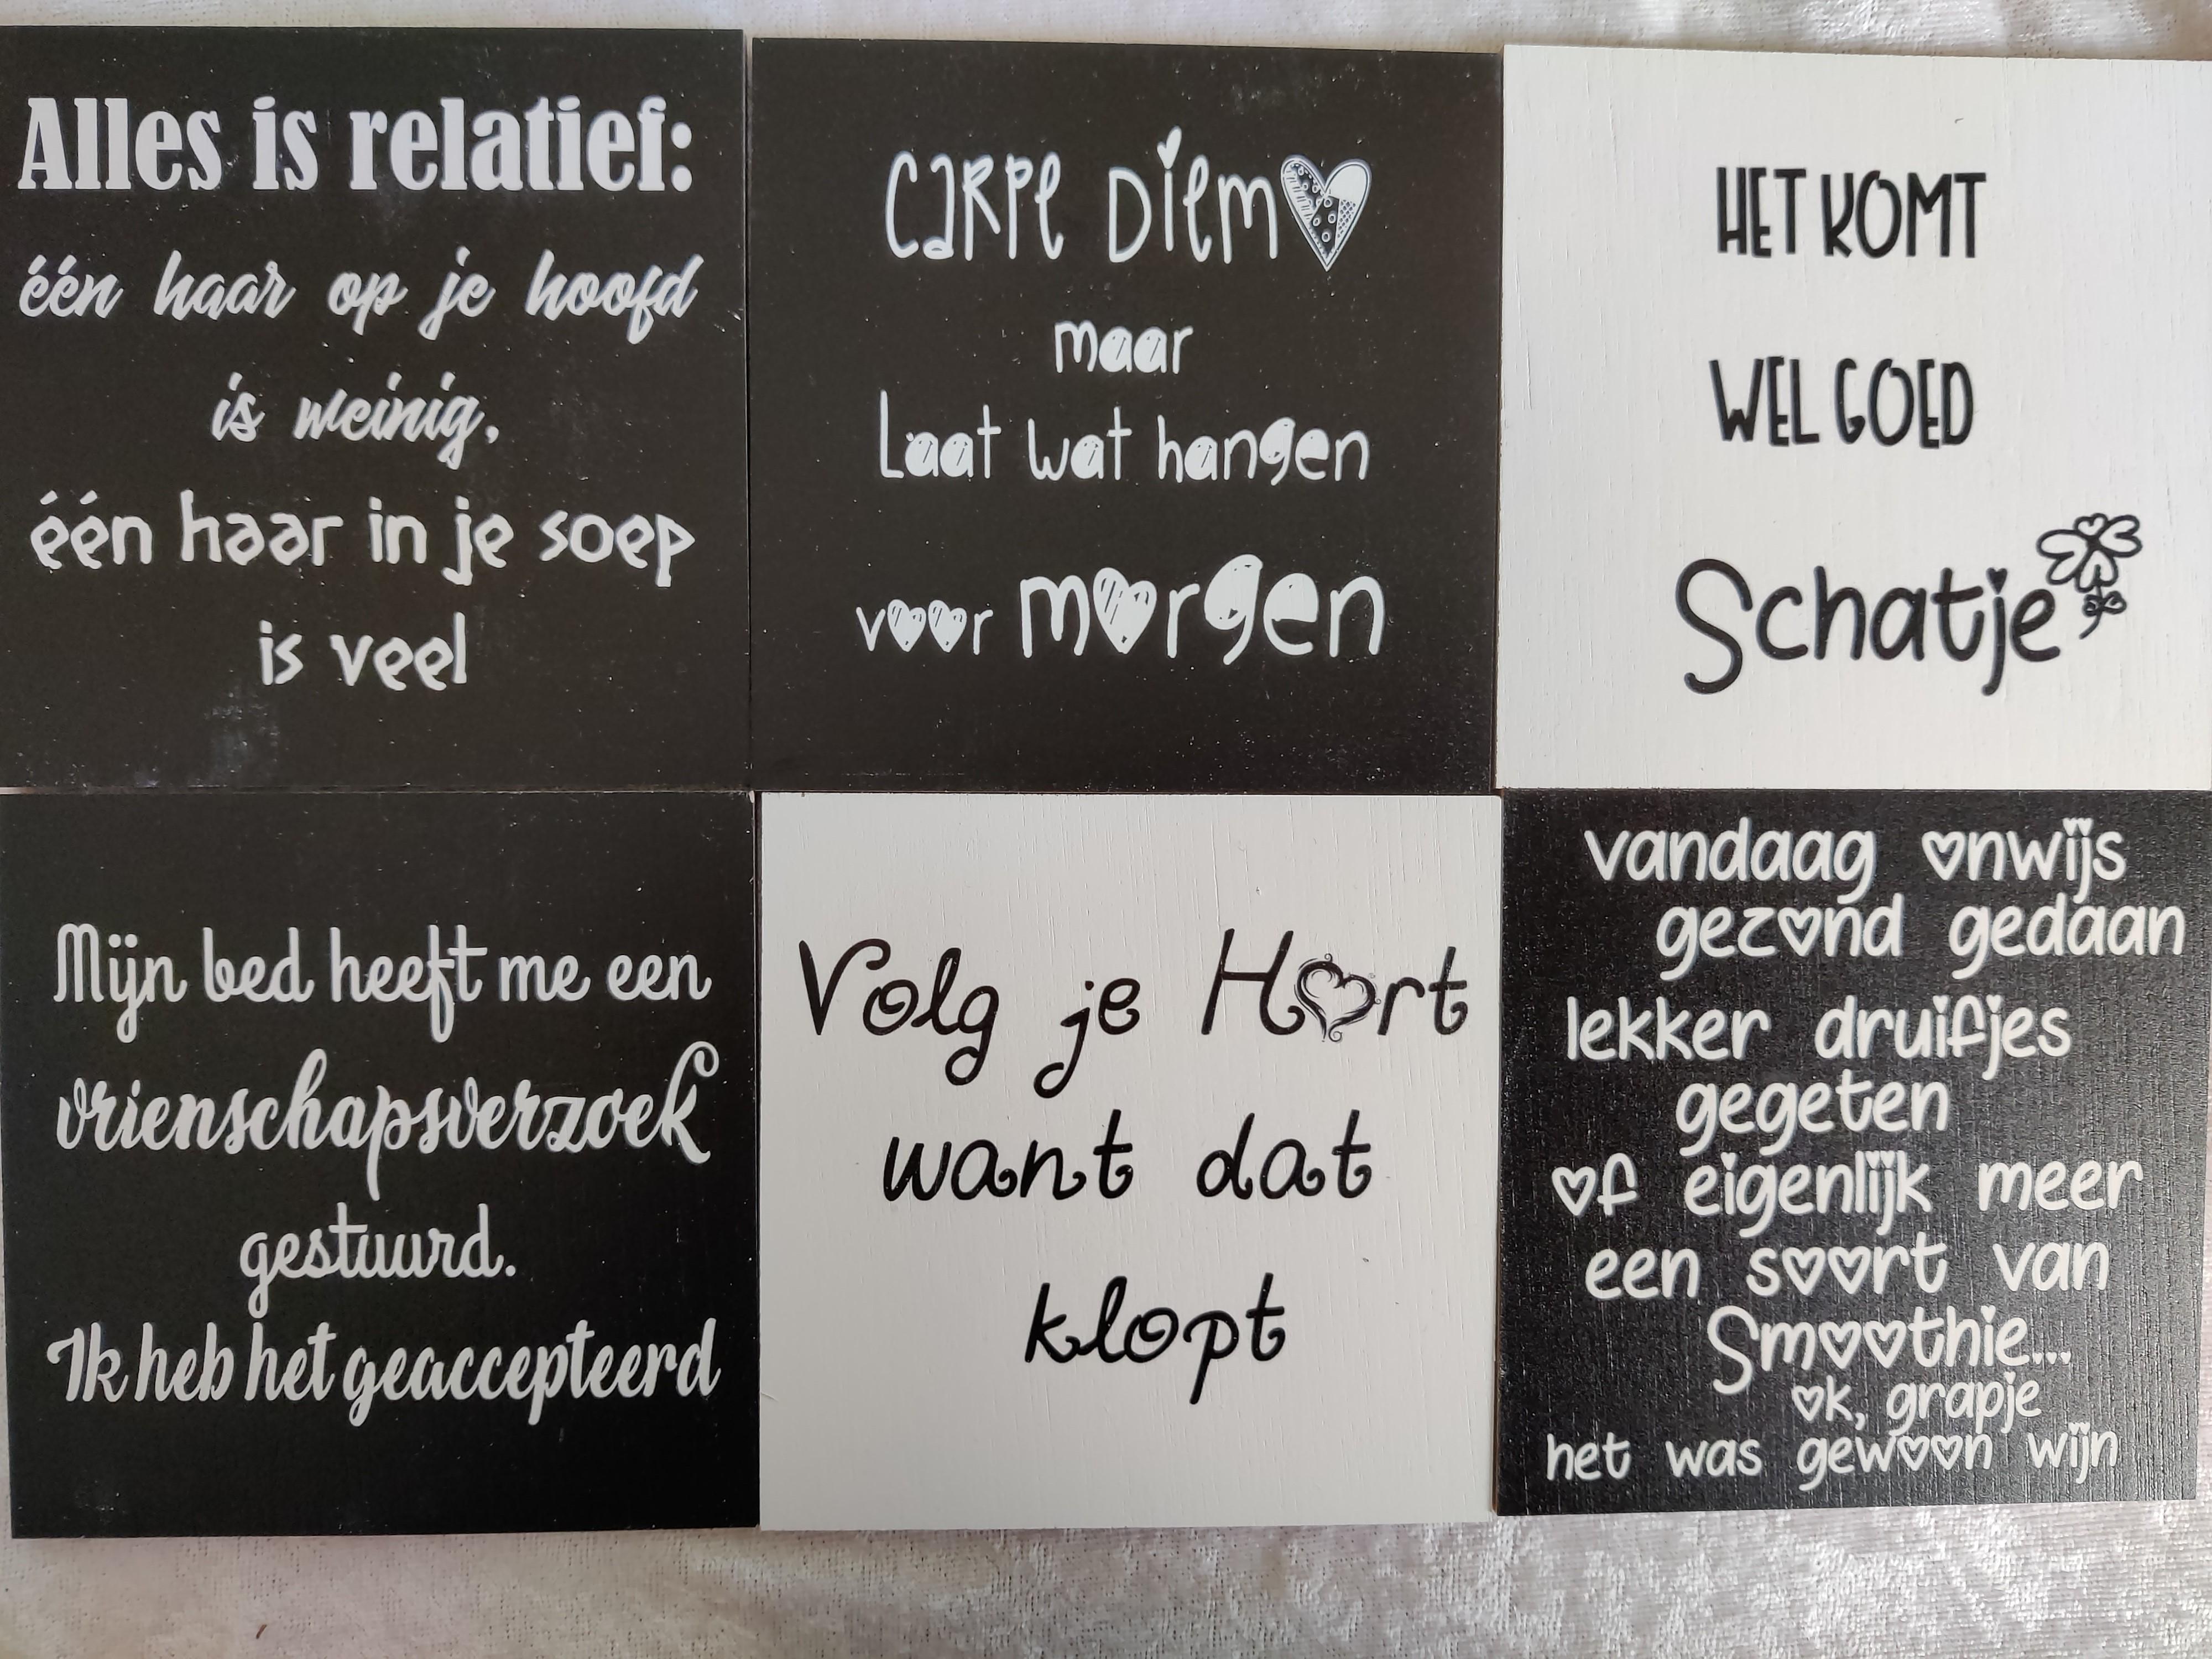 Alles is relatief:
één haar op je hoofd
is weinig,
één haar in je soep
is veel
Carpe Diem
maar
Laat wat hangen
voor morgen
HET KOMT
WEL GOED
Schatje
Mijn bed heeft me een
vrienschapsverzoek
gestuurd.
Ik heb het geaccepteerd
Volg je Hart
want dat
klopt
vandaag onwijs
gezond gedaan
lekker druifjes
gegeten
of eigenlijk meer
een soort van
Smoothie...
ok, grapje
het was gewoon wijn